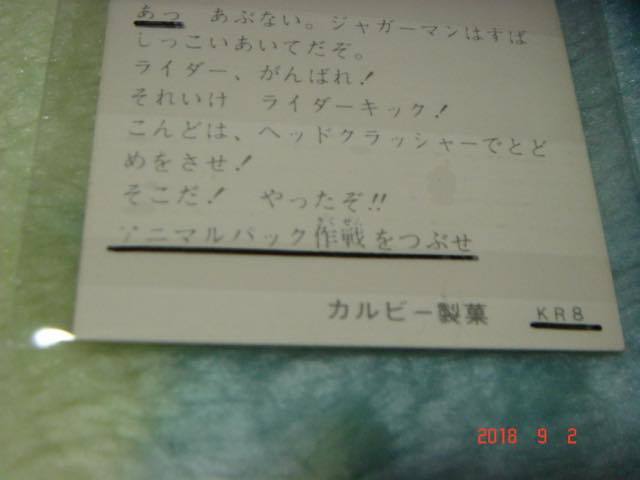 あっ　あぶない。ジャガーマンはすば
しっこいあいてだぞ。
ライダー、がんばれ！
それいけ　ライダーキック！
こんどは、ヘッドクラッシャーでとど
めをさせ！
そこだ！　やったぞ!!
アニマルパック作戦をつぶせ
カルビー製菓　KR8
2018 9 2